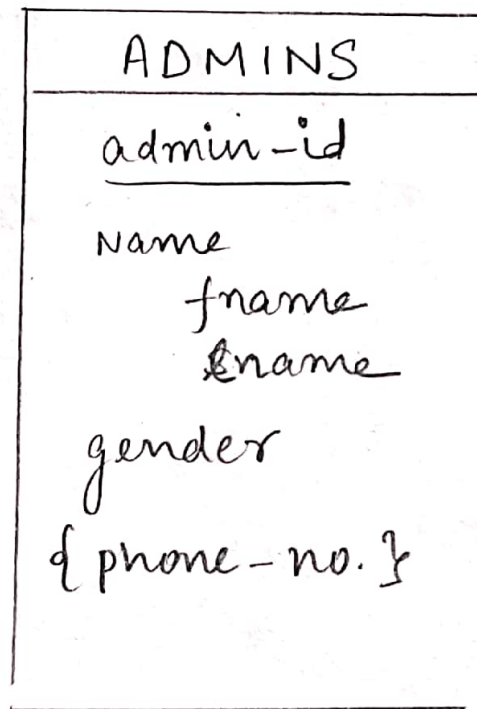 ADMINS
admin-id
Name
fname
lname
gender
{phone-no.}